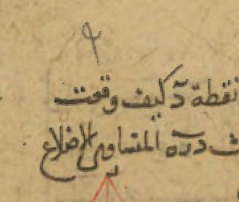 نقطة د كيف وقعت
دده المتساوى الاضلاع